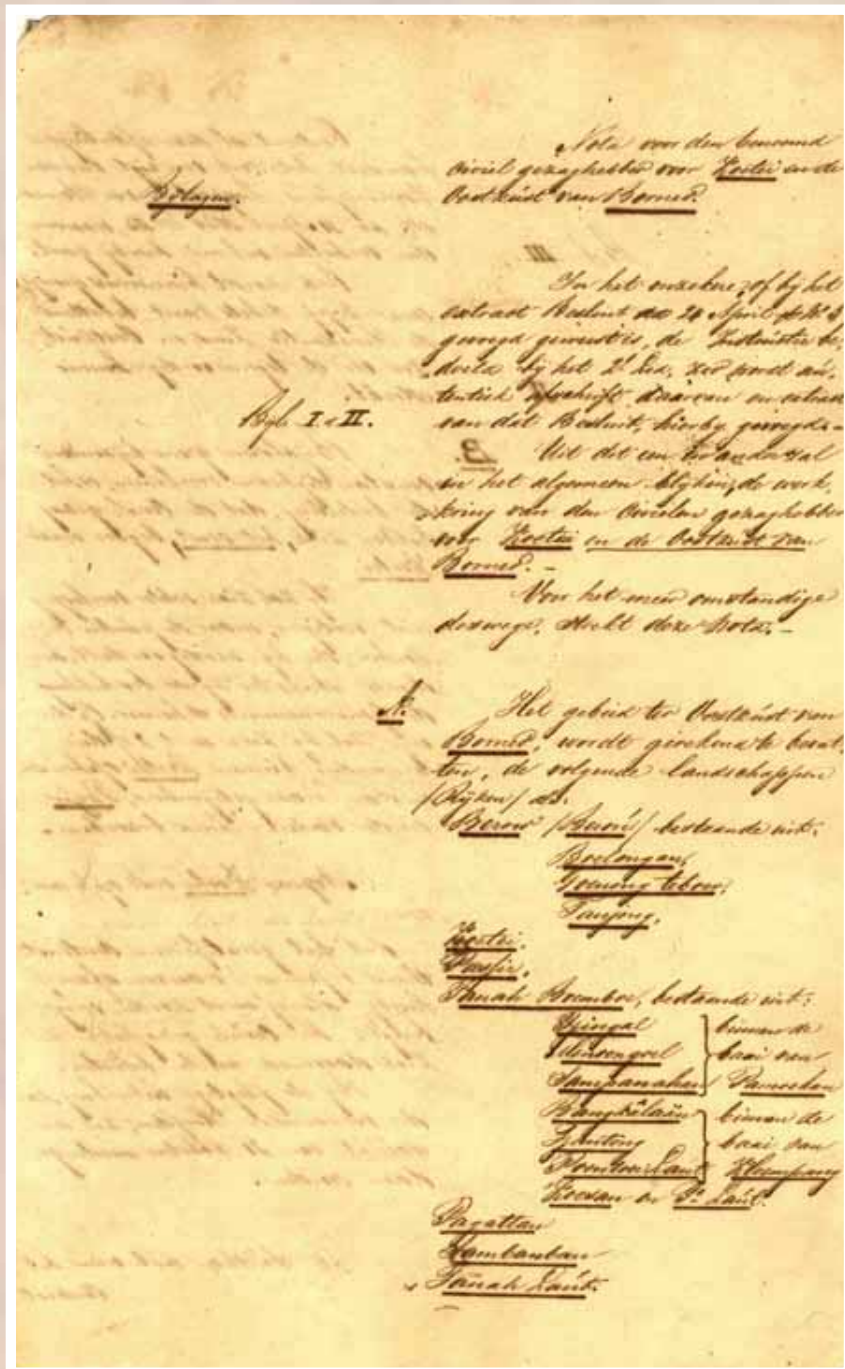 Nota voor den benoemd
Civiel gezaghebber voor Koetei en de
Oostkust van Borneo.
Bijlagen.
In het onzekere, of bij het
extract Besluit dd 24 April No 3
gevoegd geweest is, de Instructie be-
doeld bij het 2e Lid, zoo wordt au-
tentiek afschrift daarvan en extract
Bijl. I & II.
van dat Besluit, hierbij gevoegd.-
Uit dit een en ander zal
in het algemeen blijken, de werk-
kring van den Civielen gezaghebber
voor Koetei en de Oostkust van
Borneo.-
Voor het meer omstandige
deswege, strekt deze Nota.-
A.
Het gebied ter Oostkust van
Borneo, wordt gerekend te bevat-
ten, de volgende landschappen
/Rijken/ als:
Berow /Beroú/ bestaande uit:
Boelongan,
Goenong teboer,
Tanjong.
Koetei.
Passir.
Tanah Boemboe, bestaande uit:
binnen de
baai van
Sampanahan Pamoekan
Bangkalaän binnen de
baai van
Laut Kloempang
Koesan en Po Laut.
Pagattan
Tanah Laut.